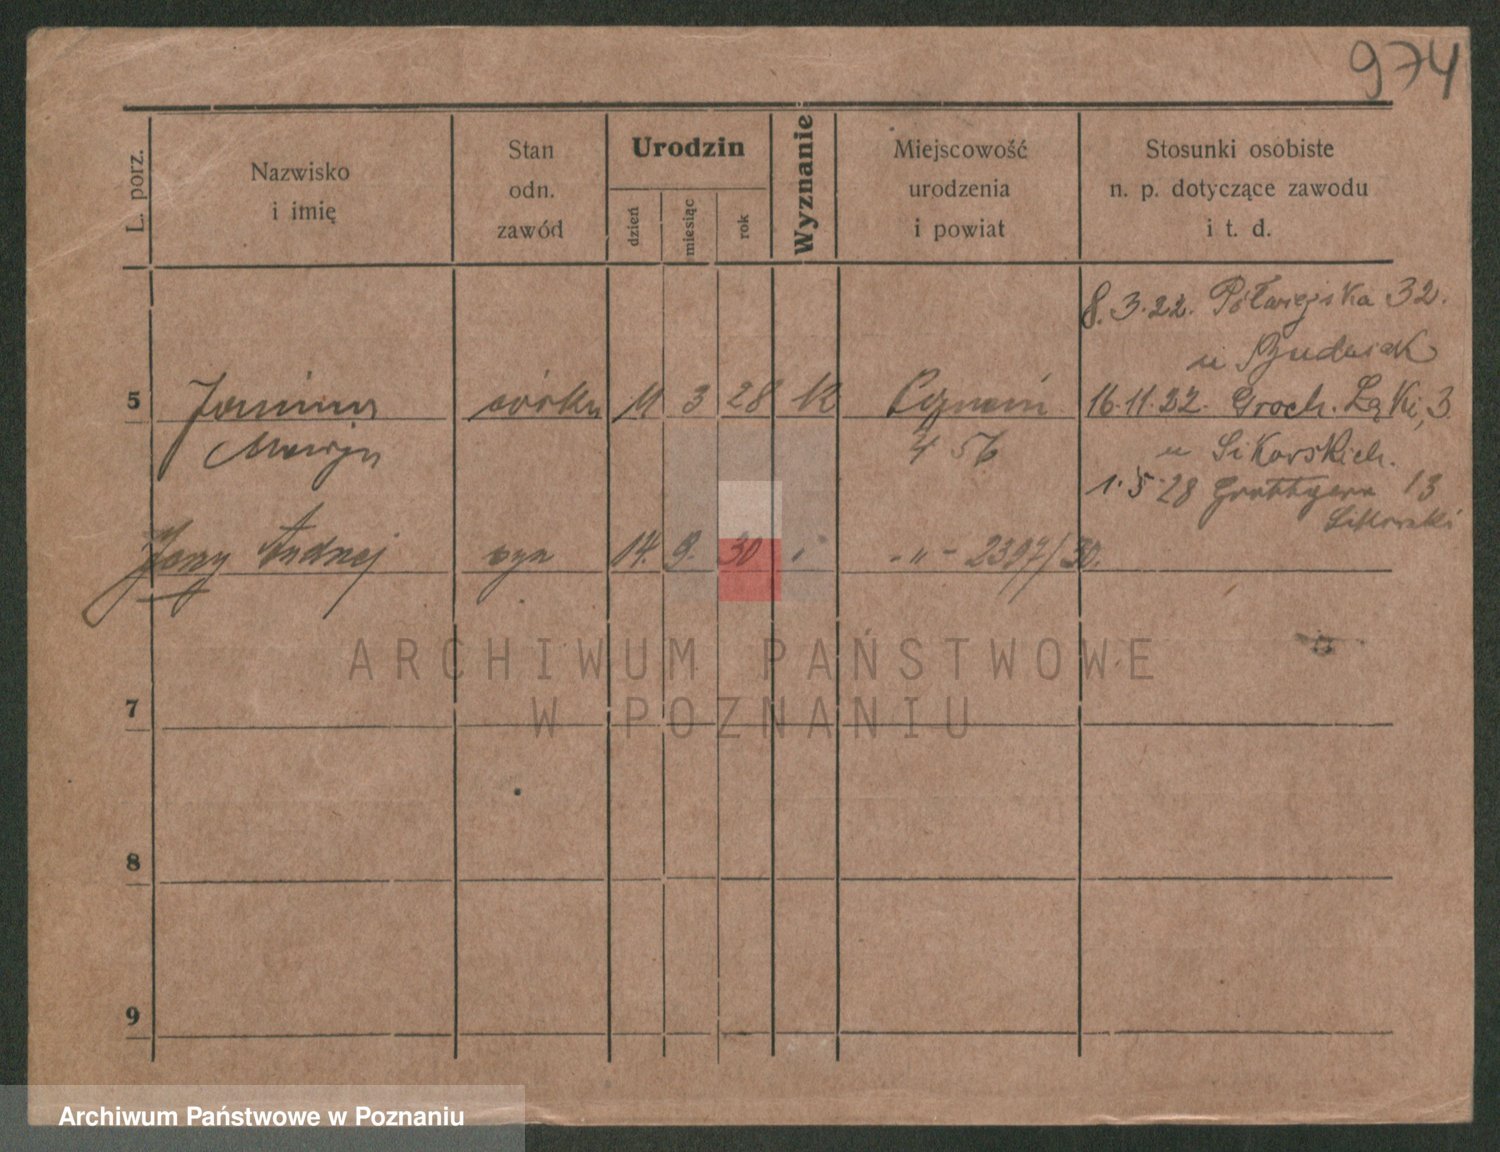 974
L. porz.
Nazwisko
i imię
Stan
odn.
zawód
Urodzin
dzień
miesiąc
rok
Wyznanie
Miejscowość
urodzenia
i powiat
Stosunki osobiste
n. p. dotyczące zawodu
i t. d.
8.3.22. Półwiejska 32.
u
5 Janina córka 11 3 28 K 16.11.22. Groch. Łąki, 3
Maryja 456 u Sikorskich.
1.5.28 Grottgera 13
Sikorski
Jerzy Andrzej syn 14. 9. 30 " -"- 2397/30.
ARCHIWUM PAŃSTWOWE
W POZNANIU
7
8
9
Archiwum Państwowe w Poznaniu